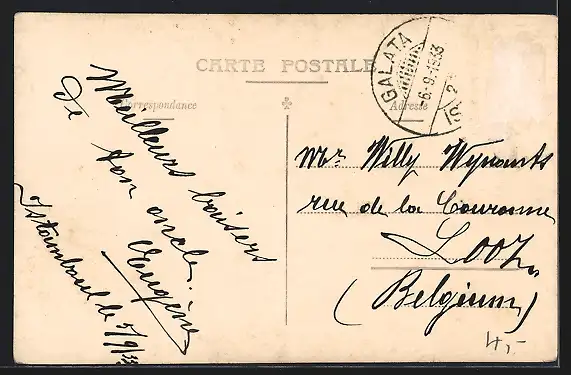 CARTE POSTALE
Correspondance
Adresse
GALATA
6.9.1933
IS. 2
Meilleurs baisers
de ton oncle.
Eugène
Istamboul le 5/9/33
Mr. Willy Wynants
rue de la Couronne
LOOZ.
(Belgium)
4,-